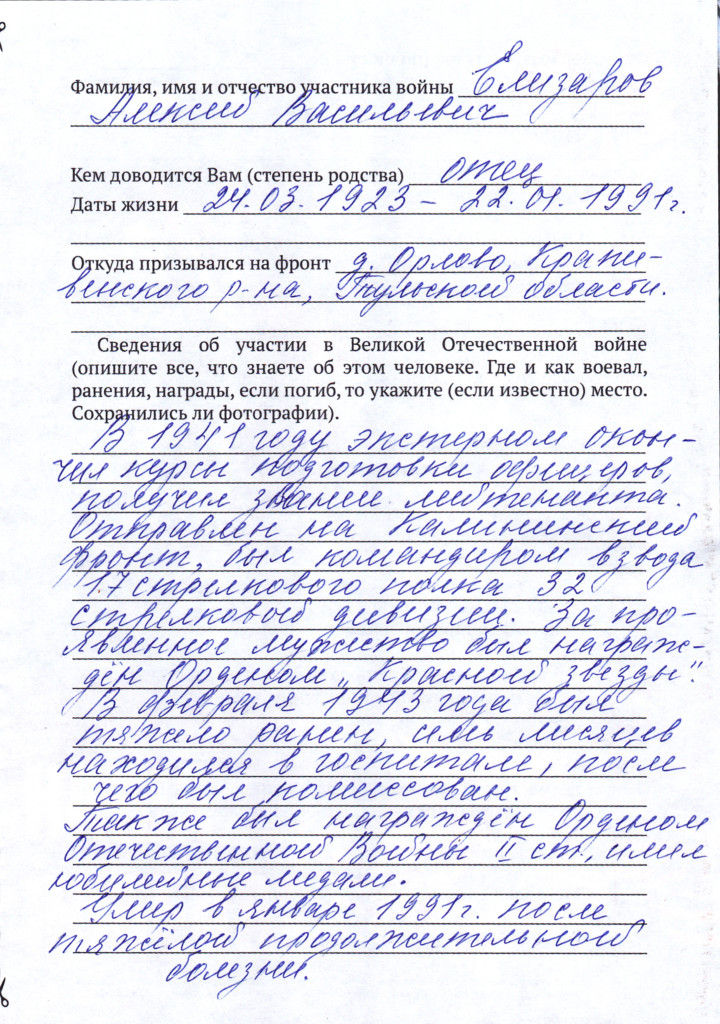 Фамилия, имя и отчество участника войны Елизаров
Алексей Васильевич
Кем доводится Вам (степень родства) отец
Даты жизни 24.03.1923 – 22.01.1991г.
Откуда призывался на фронт д. Орлово, Крапи-
венского р-на, Тульской области.
Сведения об участии в Великой Отечественной войне
(опишите все, что знаете об этом человеке. Где и как воевал,
ранения, награды, если погиб, то укажите (если известно) место.
Сохранились ли фотографии).
В 1941 году экстерном окон-
чил курсы подготовки офицеров,
получил звание лейтенанта.
Отправлен на Калининский
фронт, был командиром взвода
17 стрелкового полка 32
стрелковой дивизии. За про-
явленное мужество был награж-
дён Орденом „Красной звезды".
В феврале 1943 года был
тяжело ранен, семь месяцев
находился в госпитале, после
чего был комиссован.
Также был награждён Орденом
Отечественной Войны II ст., имел
юбилейные медали.
Умер в январе 1991г. после
тяжёлой продолжительной
болезни.